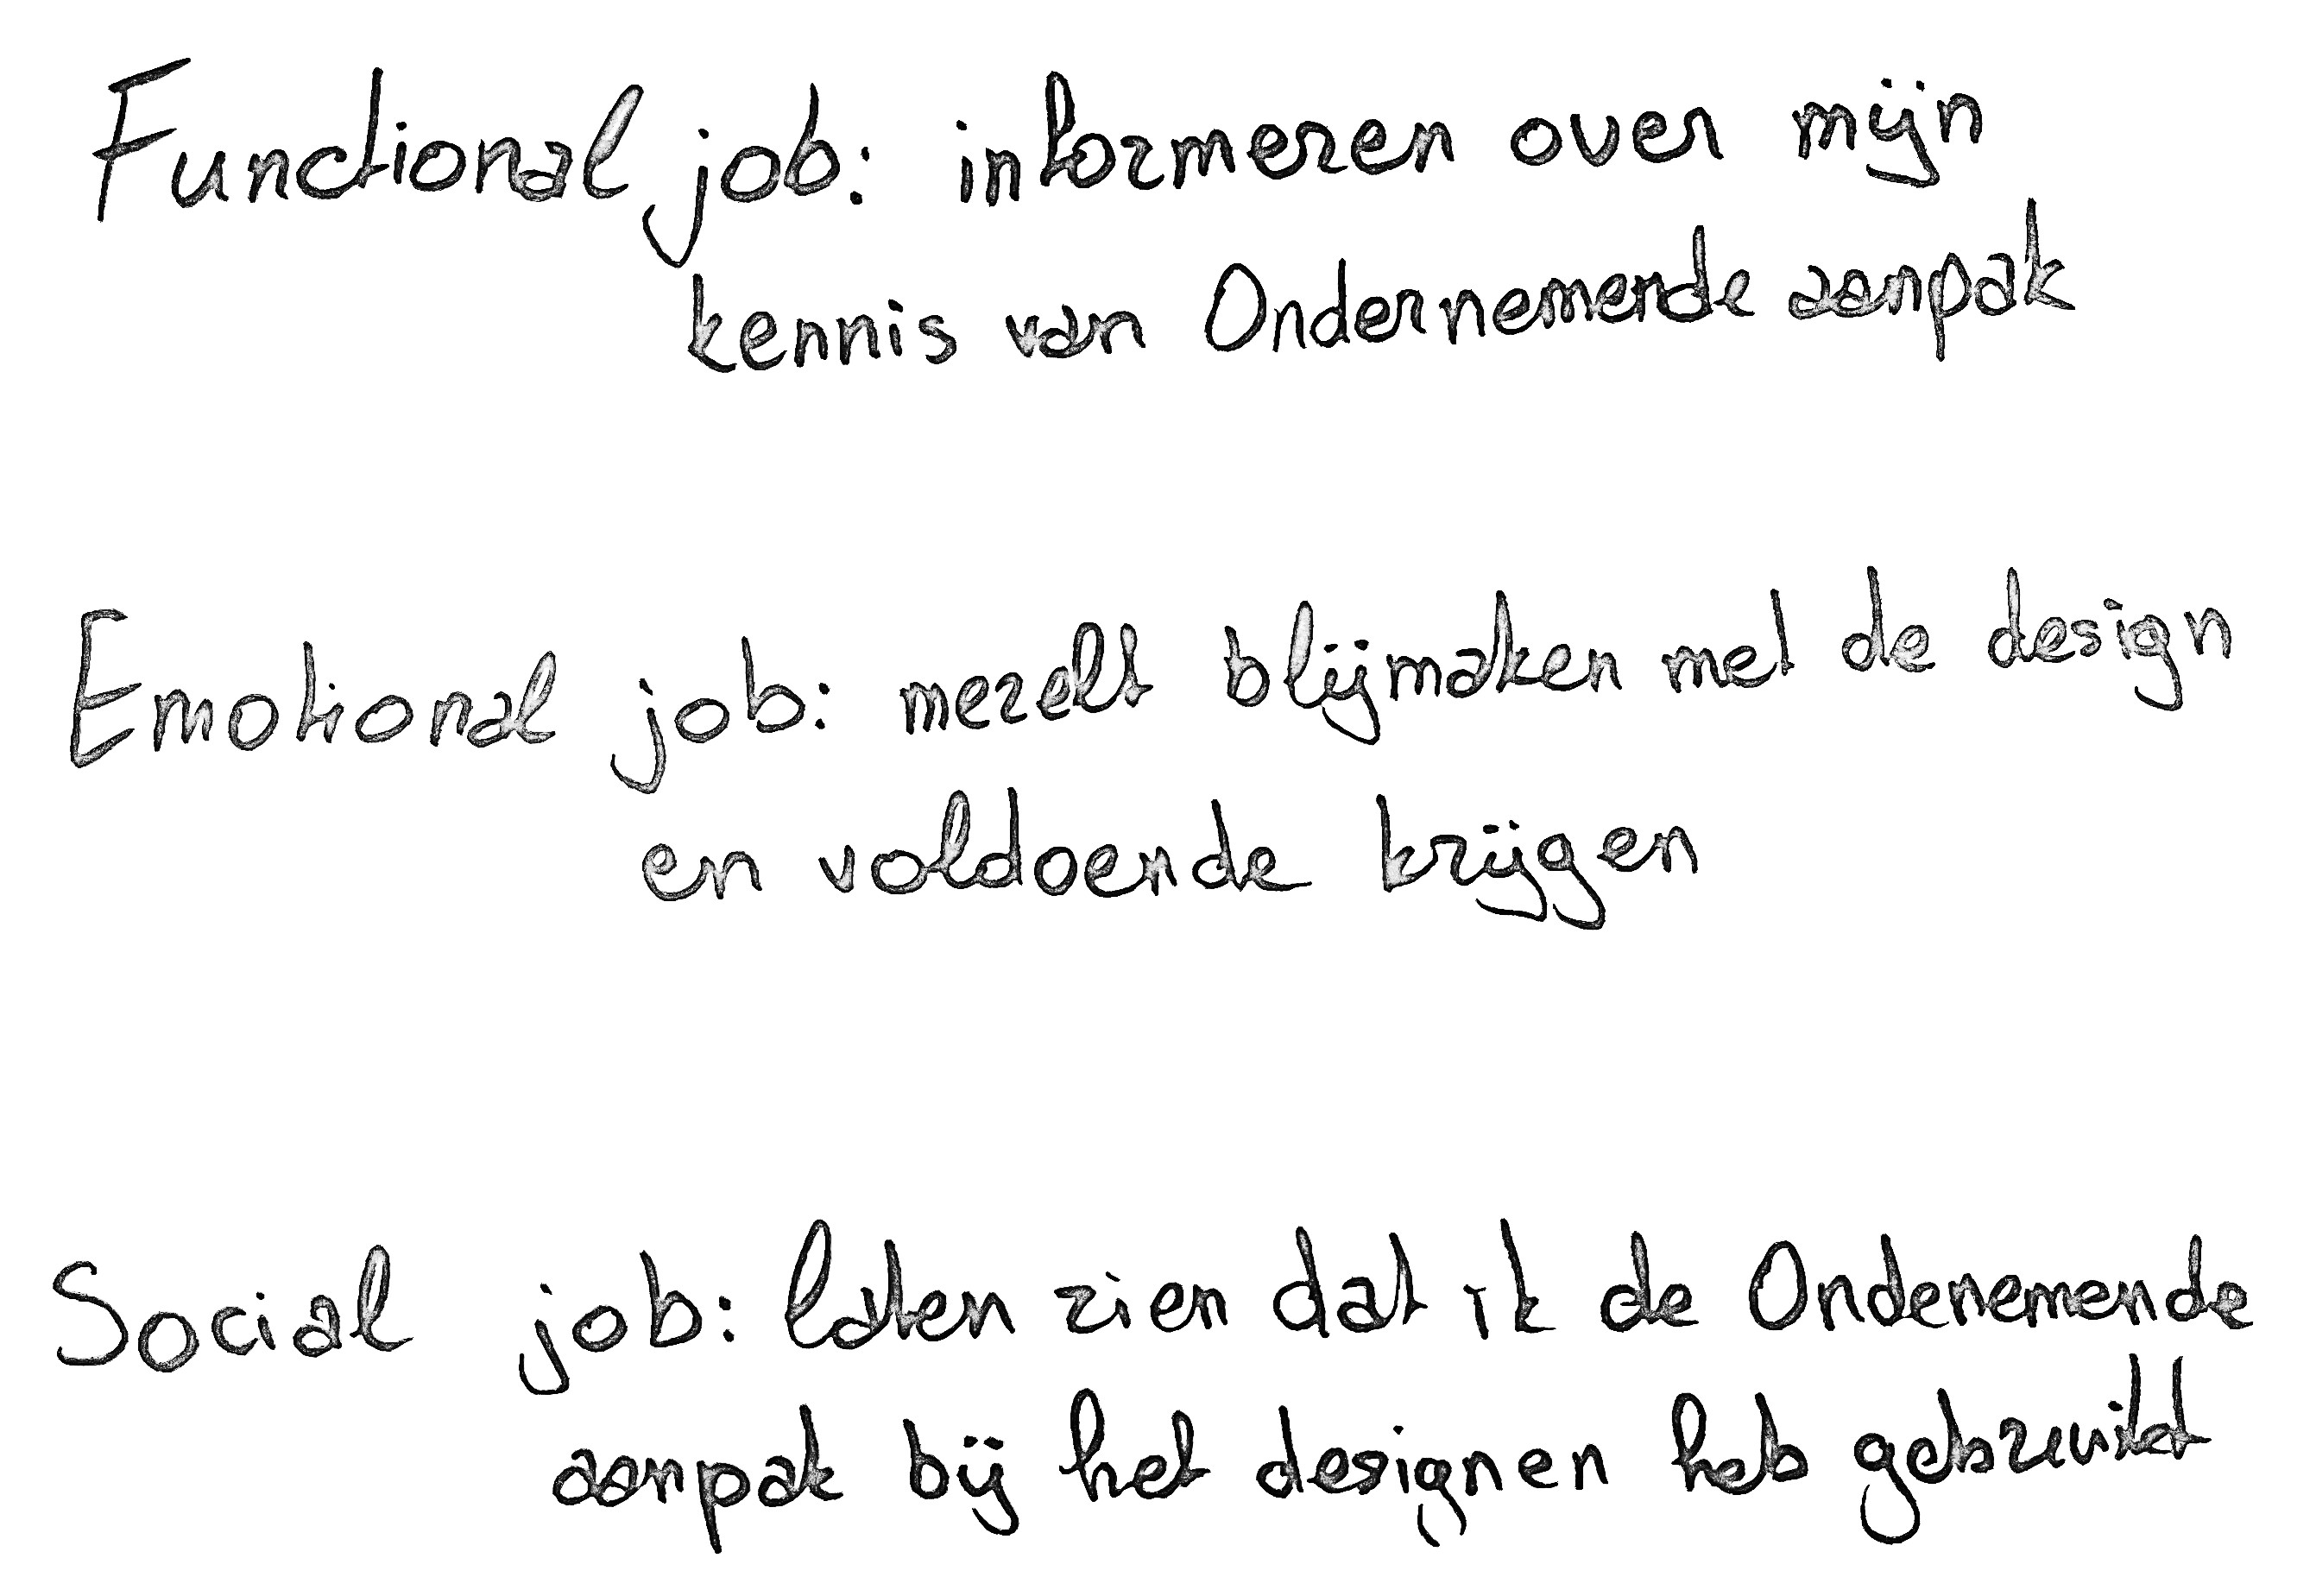 Functional job: informeren over mijn
kennis van Ondernemende aanpak
Emotional job: mezelf blijmaken met de design
en voldoende krijgen
Social job: laten zien dat ik de Ondenemende
aanpak bij het designen heb gebruikt